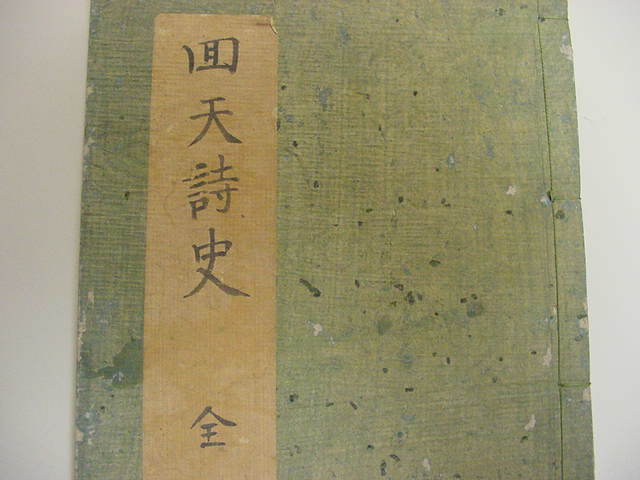 回天詩史 全